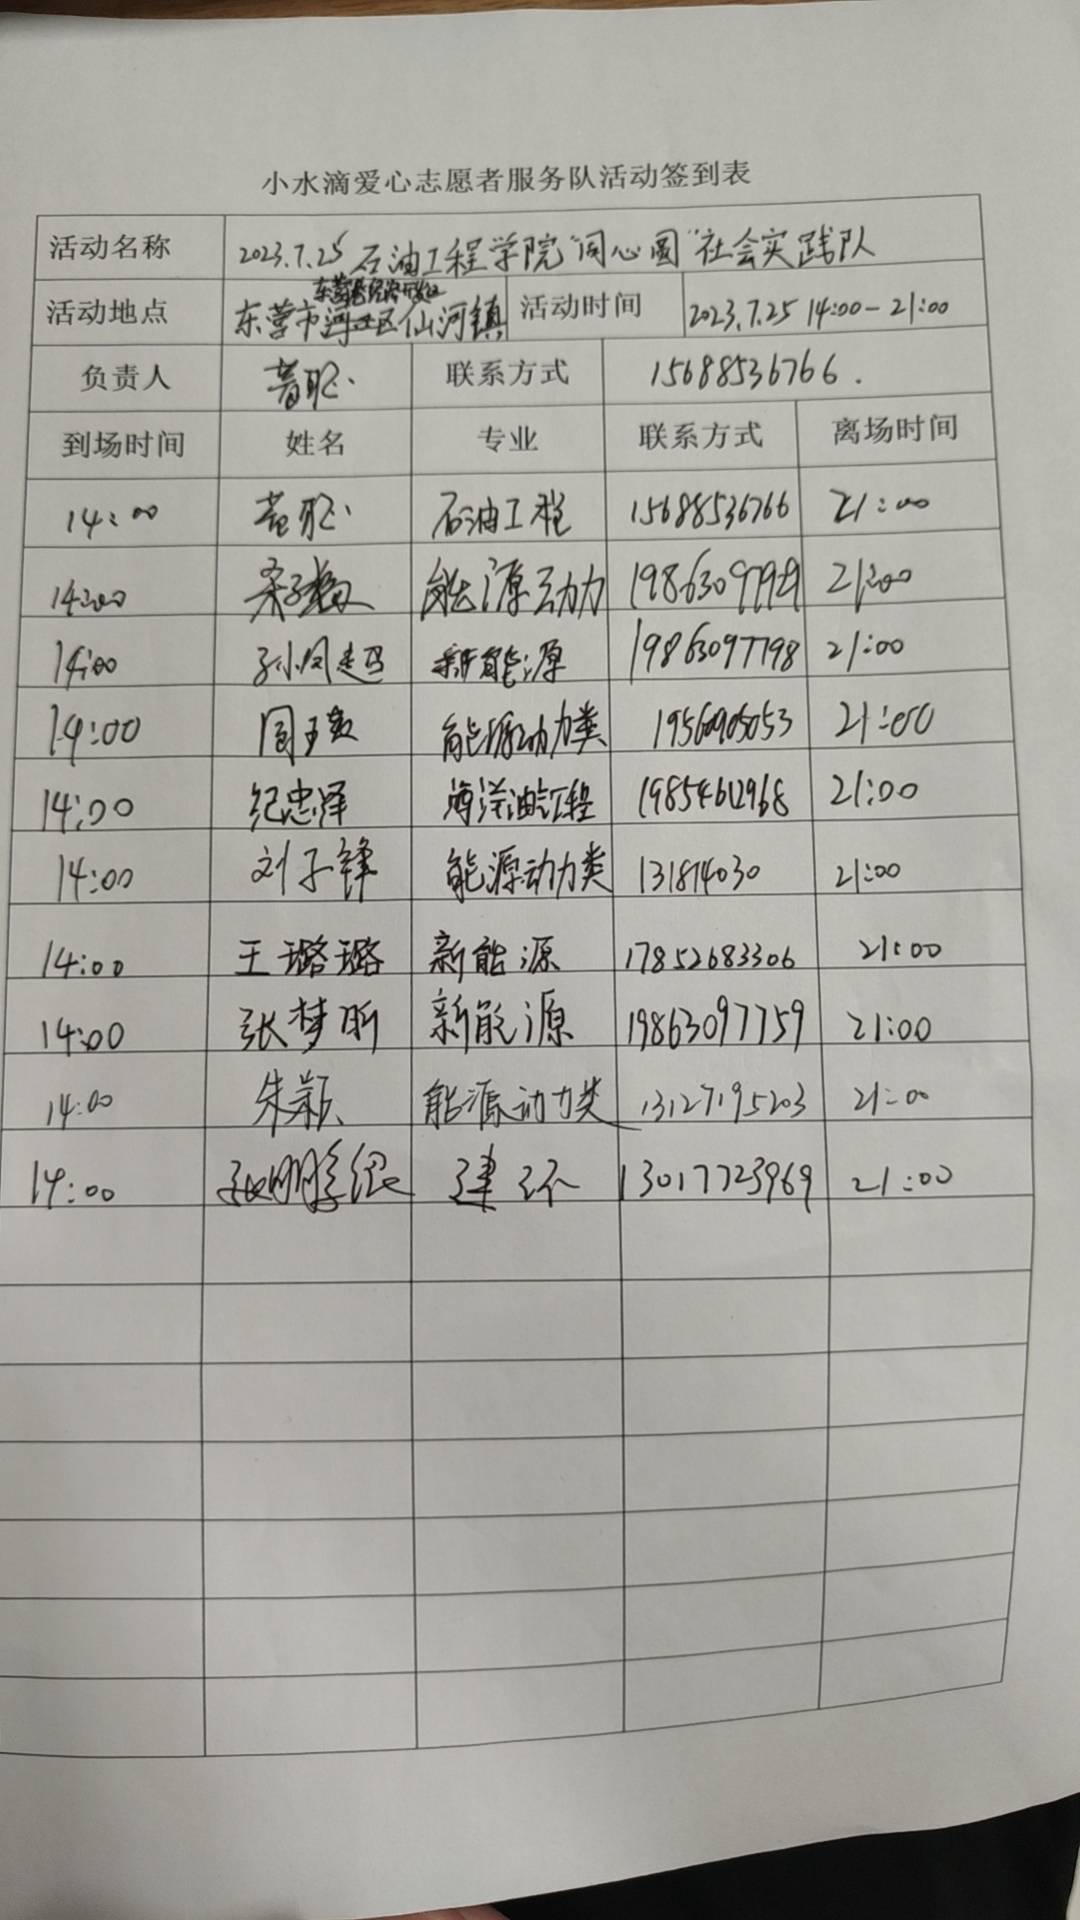 小水滴爱心志愿者服务队活动签到表
活动名称 2023.7.25 石油工程学院"同心圆"社会实践队
东营港经济开发区
活动地点 东营市河口区仙河镇 活动时间 2023.7.25 14:00-21:00
负责人 联系方式 15688536766.
到场时间 姓名 专业 联系方式 离场时间
14:00 石油工程 15688536766 21:00
14:00 能源动力 21:00
14:00 孙凤超 新能源 19863097798 21:00
14:00 能源动力类 21:00
14:00 纪忠泽 海洋油气工程 19854612968 21:00
14:00 刘子锋 能源动力类 131814030 21:00
14:00 王璐璐 新能源 17852683306 21:00
14:00 张梦昕 新能源 19863097759 21:00
14:00 朱颖 能源动力类 13127195203 21:00
14:00 建环 13017723969 21:00